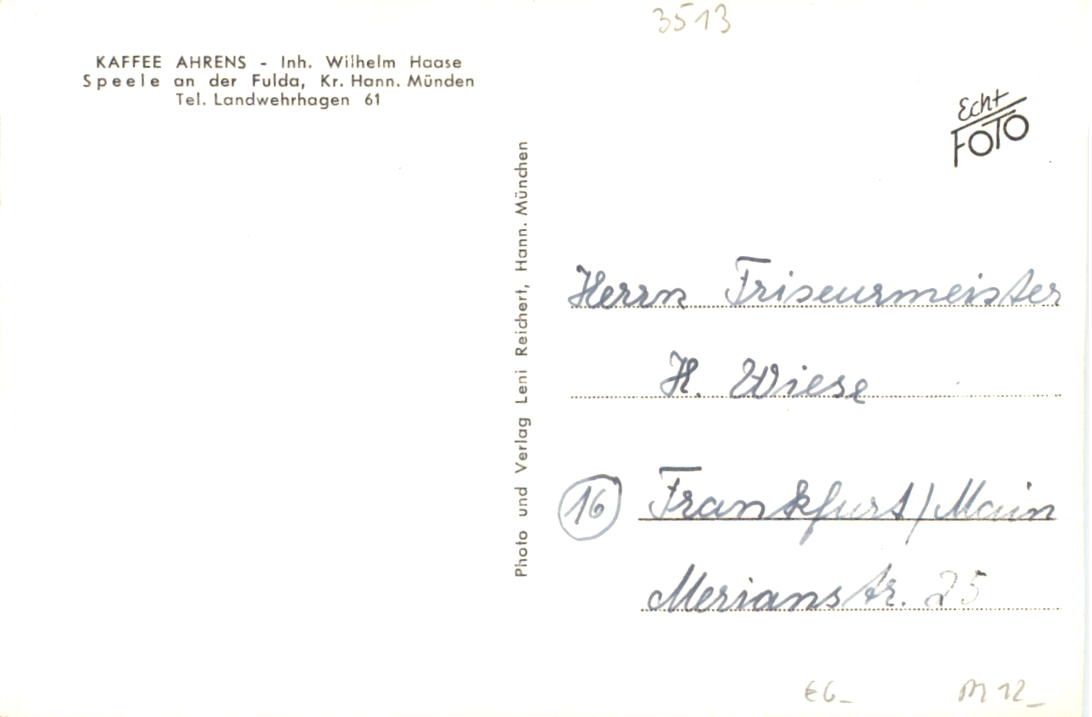 3513
KAFFEE AHRENS - Inh. Wilhelm Haase
Speele an der Fulda, Kr. Hann. Münden
Tel. Landwehrhagen 61
Echt
FOTO
Photo und Verlag Leni Reichert, Hann. München
Herrn Friseurmeister
H. Wiese
16 Frankfurt/Main
Merianstr. 25
€6_
M 12_